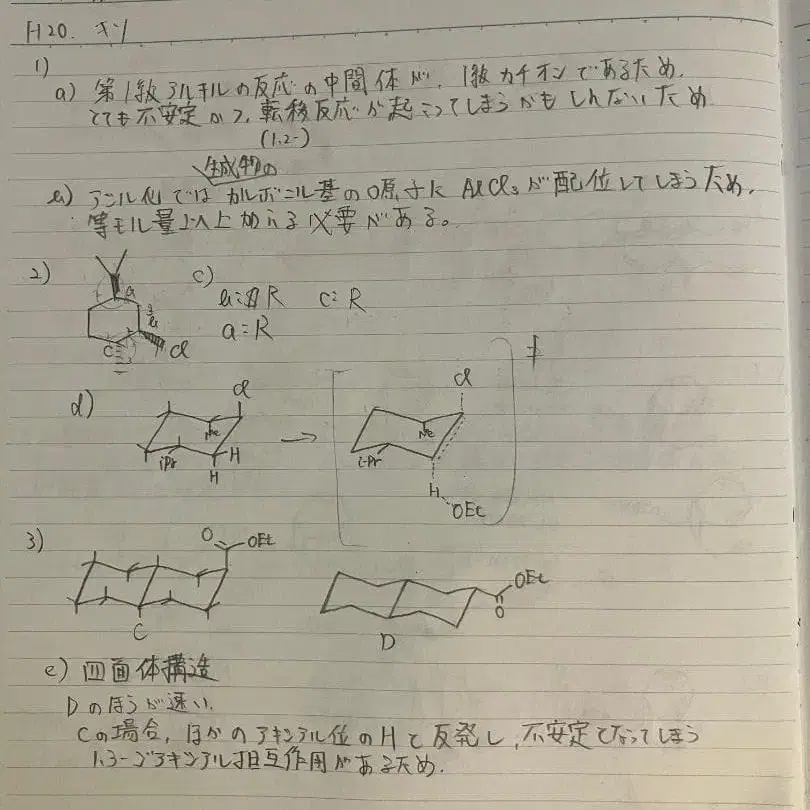 H20. キソ
1)
a) 第1級アルキルの反応の中間体が, 1級カチオンであるため,
とても不安定かつ, 転移反応が起こってしまうかもしんないため
(1.2-)
生成物の
b) アシル化ではカルボニル基のO原子に AlCl₃ が配位してしまうため,
等モル量以上加える必要がある。
2)
a
b
c
Cl
c)
b = R c = R
a = R
d)
Cl
Me
iPr
H
H
→
Cl
Me
i-Pr
H
OEt
‡
3)
O
OEt
C
OEt
O
D
e) 四面体構造
Dのほうが速い.
Cの場合, ほかのアキシアル位のHと反発し, 不安定となってしまう
1.3-ジアキシアル相互作用があるため.